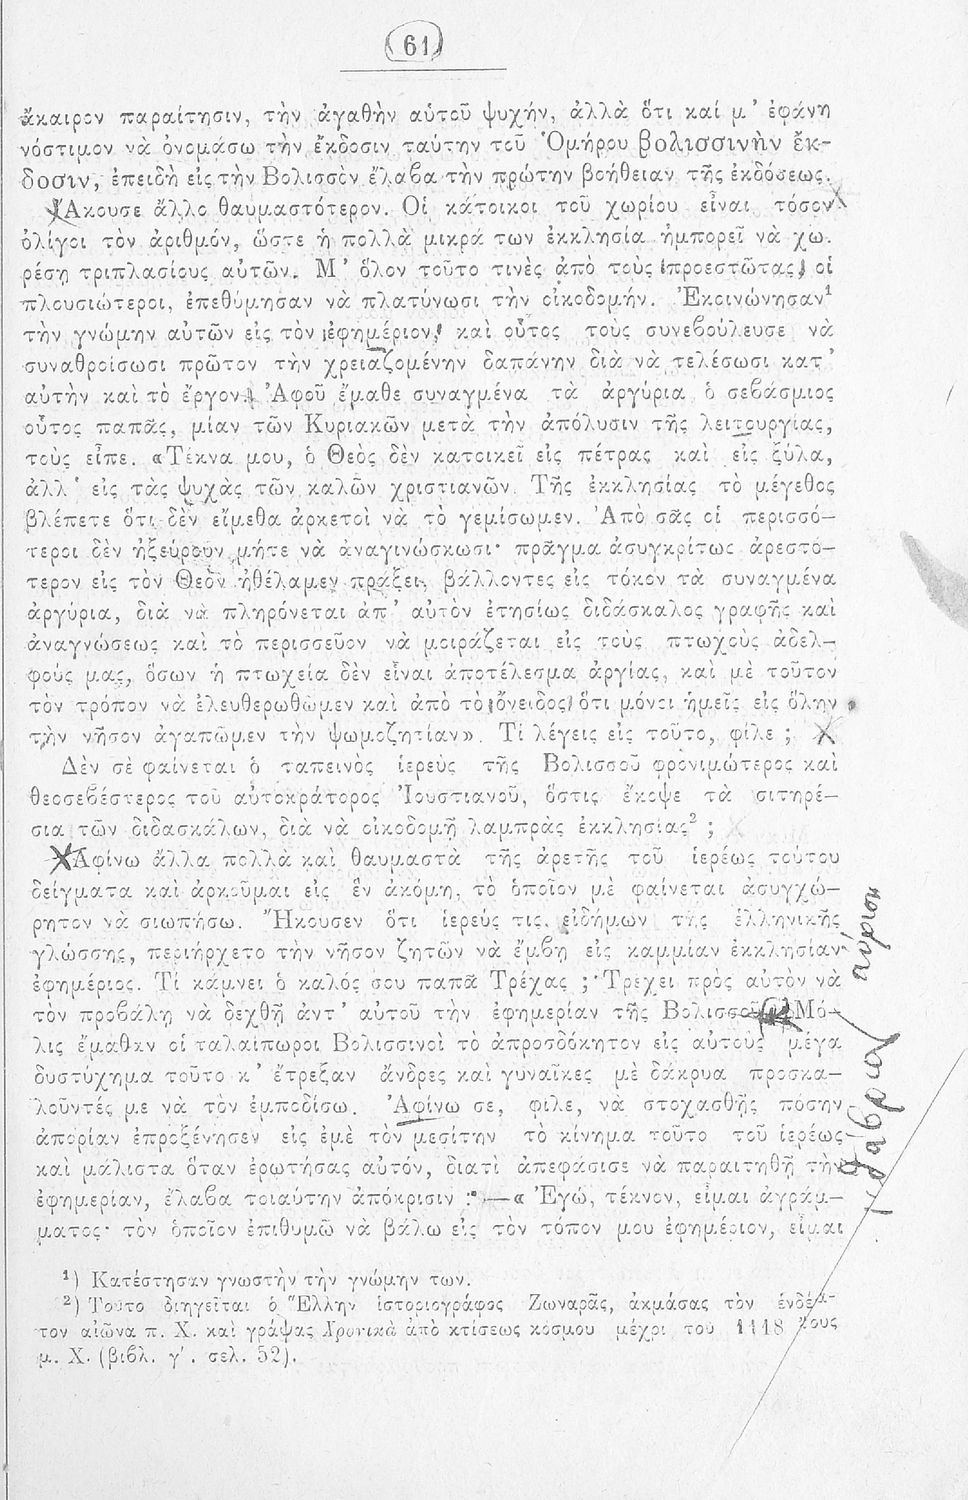 (61)
ἄκαιρον παραίτησιν, τὴν ἀγαθὴν αὐτοῦ ψυχήν, ἀλλὰ ὅτι καί μ' ἐφάνη
νόστιμον νὰ ὀνομάσω τὴν ἔκδοσιν ταύτην τοῦ Ὁμήρου βολισσινὴν ἔκ-
δοσιν, ἐπειδὴ εἰς τὴν Βολισσὸν ἔλαβα τὴν πρώτην βοήθειαν τῆς ἐκδόσεως.
Ἄκουσε ἄλλο θαυμαστότερον. Οἱ κάτοικοι τοῦ χωρίου εἶναι τόσον
ὀλίγοι τὸν ἀριθμόν, ὥστε ἡ πολλὰ μικρά των ἐκκλησία ἠμπορεῖ νὰ χω.
ρέσῃ τριπλασίους αὐτῶν. Μ' ὅλον τοῦτο τινὲς ἀπὸ τοὺς προεστῶτας, οἱ
πλουσιώτεροι, ἐπεθύμησαν νὰ πλατύνωσι τὴν οἰκοδομήν. Ἐκοινώνησαν¹
τὴν γνώμην αὐτῶν εἰς τὸν ἐφημέριον, καὶ οὗτος τοὺς συνεβούλευσε νὰ
συναθροίσωσι πρῶτον τὴν χρειαζομένην δαπάνην διὰ νὰ τελέσωσι κατ'
αὐτὴν καὶ τὸ ἔργον. Ἀφοῦ ἔμαθε συναγμένα τὰ ἀργύρια ὁ σεβάσμιος
οὗτος παπᾶς, μίαν τῶν Κυριακῶν μετὰ τὴν ἀπόλυσιν τῆς λειτουργίας,
τοὺς εἶπε. «Τέκνα μου, ὁ Θεὸς δὲν κατοικεῖ εἰς πέτρας καὶ εἰς ξύλα,
ἀλλ' εἰς τὰς ψυχὰς τῶν καλῶν χριστιανῶν. Τῆς ἐκκλησίας τὸ μέγεθος
βλέπετε ὅτι δὲν εἴμεθα ἀρκετοὶ νὰ τὸ γεμίσωμεν. Ἀπὸ σᾶς οἱ περισσό-
τεροι δὲν ἠξεύρουν μήτε νὰ ἀναγινώσκωσι· πρᾶγμα ἀσυγκρίτως ἀρεστό-
τερον εἰς τὸν Θεὸν ἠθέλαμεν πράξει, βάλλοντες εἰς τόκον τὰ συναγμένα
ἀργύρια, διὰ νὰ πληρόνεται ἀπ' αὐτὸν ἐτησίως διδάσκαλος γραφῆς καὶ
ἀναγνώσεως καὶ τὸ περισσεῦον νὰ μοιράζεται εἰς τοὺς πτωχοὺς ἀδελ-
φούς μας, ὅσων ἡ πτωχεία δὲν εἶναι ἀποτέλεσμα ἀργίας, καὶ μὲ τοῦτον
τὸν τρόπον νὰ ἐλευθερωθῶμεν καὶ ἀπὸ τὸ ὄνειδος ὅτι μόνοι ἡμεῖς εἰς ὅλην
τὴν νῆσον ἀγαπῶμεν τὴν ψωμοζητίαν». Τί λέγεις εἰς τοῦτο, φίλε ;
Δὲν σὲ φαίνεται ὁ ταπεινὸς ἱερεὺς τῆς Βολισσοῦ φρονιμώτερος καὶ
θεοσεβέστερος τοῦ αὐτοκράτορος Ἰουστιανοῦ, ὅστις ἔκοψε τὰ σιτηρέ-
σια τῶν διδασκάλων, διὰ νὰ οἰκοδομῇ λαμπρὰς ἐκκλησίας² ;
Ἀφίνω ἄλλα πολλὰ καὶ θαυμαστὰ τῆς ἀρετῆς τοῦ ἱερέως τούτου
δείγματα καὶ ἀρκοῦμαι εἰς ἓν ἀκόμη, τὸ ὁποῖον μὲ φαίνεται ἀσυγχώ-
ρητον νὰ σιωπήσω. Ἤκουσεν ὅτι ἱερεύς τις, εἰδήμων τῆς ἑλληνικῆς
γλώσσης, περιήρχετο τὴν νῆσον ζητῶν νὰ ἔμβῃ εἰς καμμίαν ἐκκλησίαν
ἐφημέριος. Τί κάμνει ὁ καλός σου παπᾶ Τρέχας ; Τρέχει πρὸς αὐτὸν νὰ
τὸν προβάλῃ νὰ δεχθῇ ἀντ' αὐτοῦ τὴν ἐφημερίαν τῆς Βολισσοῦ. Μό-
λις ἔμαθαν οἱ ταλαίπωροι Βολισσινοὶ τὸ ἀπροσδόκητον εἰς αὐτοὺς μέγα
δυστύχημα τοῦτο κ' ἔτρεξαν ἄνδρες καὶ γυναῖκες μὲ δάκρυα προσκα-
λοῦντές με νὰ τὸν ἐμποδίσω. Ἀφίνω σε, φίλε, νὰ στοχασθῇς πόσην
ἀπορίαν ἐπροξένησεν εἰς ἐμὲ τὸν μεσίτην τὸ κίνημα τοῦτο τοῦ ἱερέως
καὶ μάλιστα ὅταν ἐρωτήσας αὐτόν, διατί ἀπεφάσισε νὰ παραιτηθῇ τὴν
ἐφημερίαν, ἔλαβα τοιαύτην ἀπόκρισιν :—« Ἐγώ, τέκνον, εἶμαι ἀγράμ-
ματος· τὸν ὁποῖον ἐπιθυμῶ νὰ βάλω εἰς τὸν τόπον μου ἐφημέριον, εἶμαι
¹) Κατέστησαν γνωστὴν τὴν γνώμην των.
²) Τοῦτο διηγεῖται ὁ Ἕλλην ἱστοριογράφος Ζωναρᾶς, ἀκμάσας τὸν ἑνδέκα-
τον αἰῶνα π. Χ. καὶ γράψας Χρονικὰ ἀπὸ κτίσεως κόσμου μέχρι τοῦ 1118 ἔτους
μ. Χ. (βιβλ. γ'. σελ. 52).
αὔριον